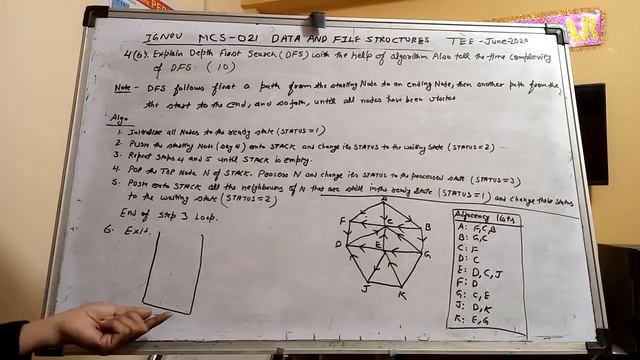 IGNOU MCS-021 DATA AND FILE STRUCTURES TEE-June-2020
4(b). Explain Depth First Search (DFS) with the help of algorithm. Also tell the time complexity
of DFS. (10)
Note - DFS follows first a path from the starting Node to an ending Node, then another path from the
the start to the end, and so forth, until all nodes have been visited
Algo
1. Initialize all Nodes to the ready state (STATUS=1)
2. PUSH the starting Node (say N) onto STACK and change its STATUS to the waiting state (STATUS=2)
3. Repeat Steps 4 and 5 until STACK is empty.
4. Pop the TOP Node N of STACK. Process N and change its STATUS to the processed state (STATUS=3)
5. Push onto STACK all the neighbours of N that are still in the ready state (STATUS=1) and change their STATUS
to the waiting state (STATUS=2)
End of Step 3 Loop.
6. Exit.
A
F
C
B
D
E
G
J
K
Adjacency lists
A: F, C, B
B: G, C
C: F
D: C
E: D, C, J
F: D
G: C, E
J: D, K
K: E, G